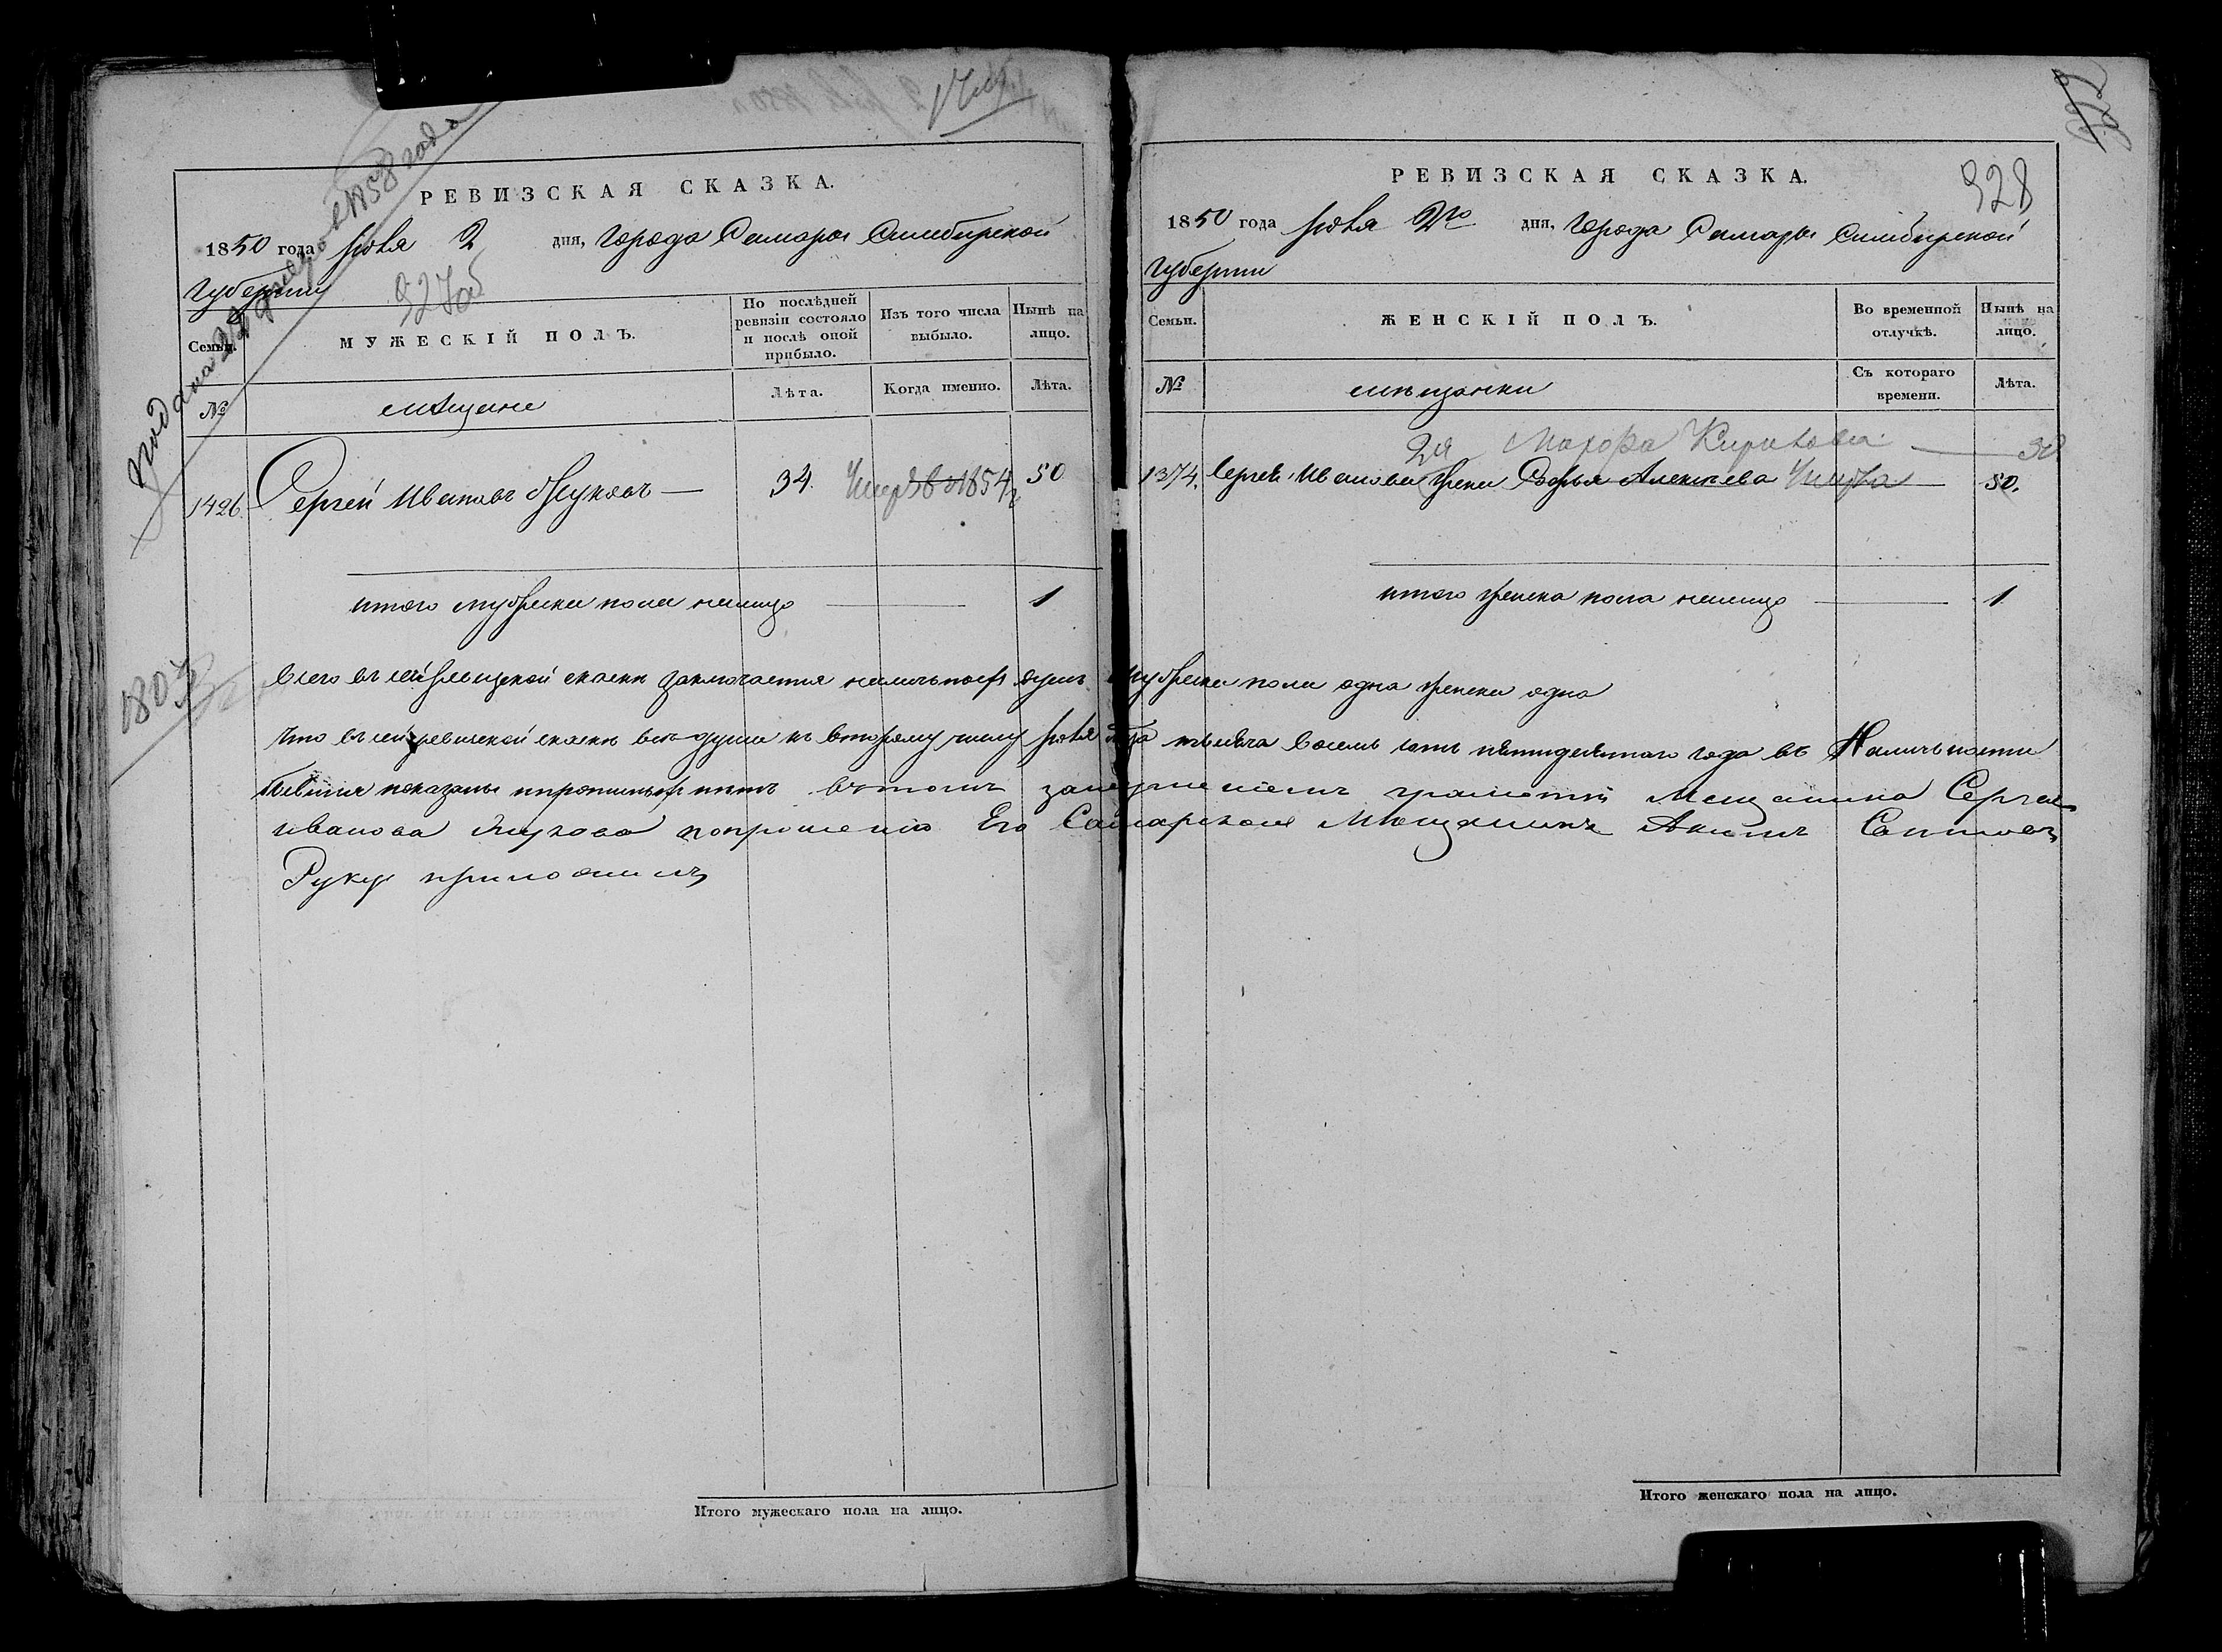 РЕВИЗСКАЯ СКАЗКА.
1850 года Ноября 2 дня, Города Самары Симбирской
Губернии
927об
Семьи.
МУЖЕСКІЙ ПОЛЪ.
По послѣдней ревизіи состояло и послѣ оной прибыло.
Изъ того числа выбыло.
Нынѣ на лицо.
№
мѣщане
Лѣта.
Когда именно.
Лѣта.
1426. Сергей Ивановъ Жуковъ — 34. Умеръ в 1854 50
итого мужска пола налицо — 1
1803
РЕВИЗСКАЯ СКАЗКА.
928
1850 года Ноября 2го дня, Города Самары Симбирской
Губернии
Семьи.
ЖЕНСКІЙ ПОЛЪ.
Во временной отлучкѣ.
Нынѣ на лицо.
№
мѣщанки
Съ котораго времени.
Лѣта.
2я Кирилова — 30
1374. Сергея Иванова жена Дарья Алексѣева — 50.
итого женска пола налицо — 1
Всего въ сей ревизской сказкѣ заключается наличныхъ душъ мужска пола одна женска одна
Что въ сей ревизской сказкѣ всѣ души къ второму числу Ноября тысяча восемь сотъ пятидесятаго года въ Наличности
показаны и пропущенныхъ нѣтъ вътомъ грамоте Мещанина Сергея
Иванова Жукова попрошению Его Самарской Мещанинъ Акимъ
Руку приложилъ
Итого мужескаго пола на лицо.
Итого женскаго пола на лицо.